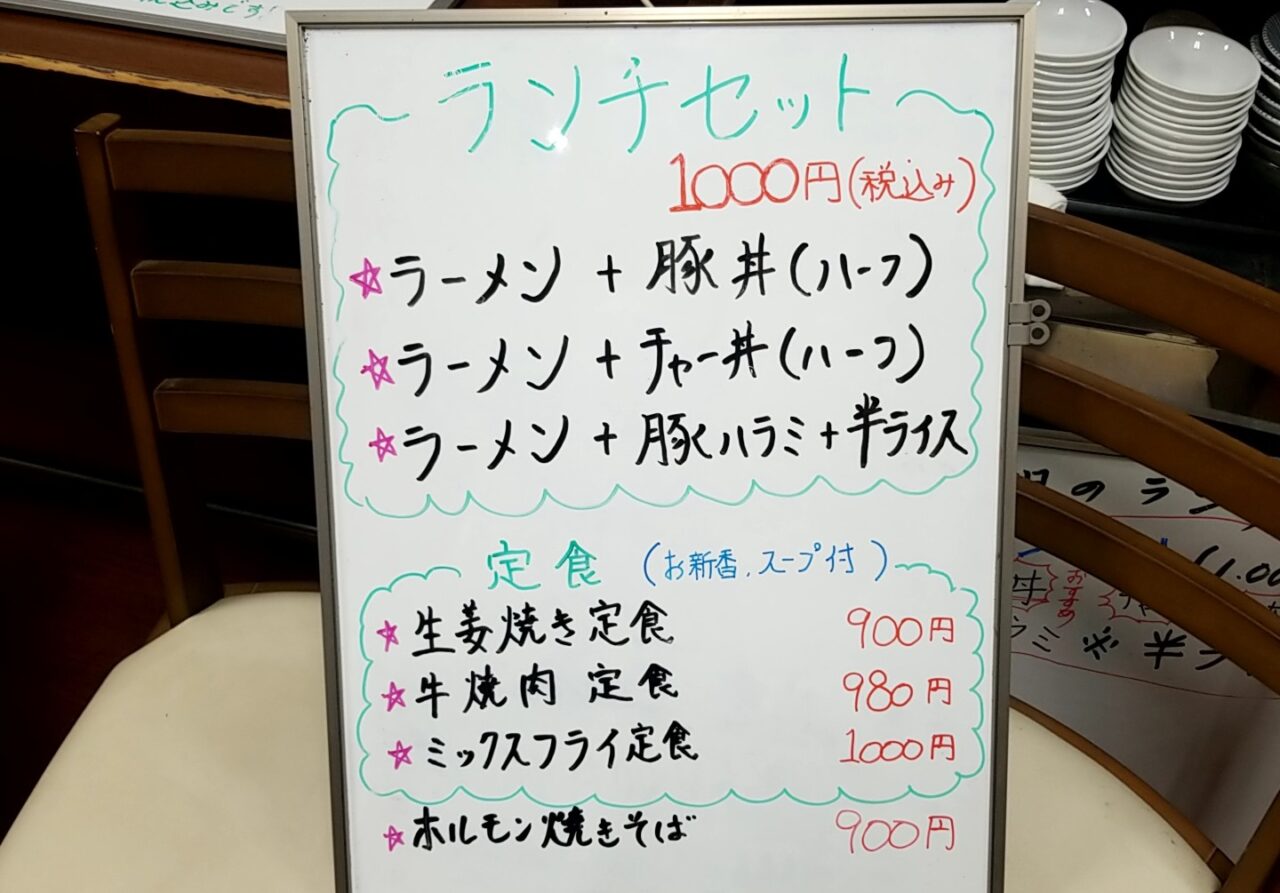 込みです!
ランチセット
1000円(税込み)
☆ラーメン + 豚丼(ハーフ)
☆ラーメン + チャー丼(ハーフ)
☆ラーメン + 豚ハラミ + 半ライス
定食 (お新香、スープ付)
☆生姜焼き定食 900円
☆牛焼肉定食 980円
☆ミックスフライ定食 1000円
☆ホルモン焼きそば 900円
のラン
丼 おすすめ
ラミ ※ 半ラ